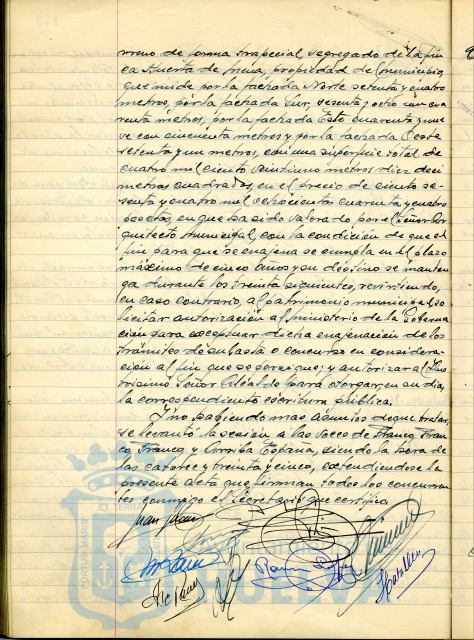 rreno de forma trapecial, segregado de la fin
ca Huerta de Mena, propiedad del municipio,
que mide por la fachada Norte setenta y cuatro
metros, por la fachada Sur, sesenta y ocho con cua
renta metros, por la fachada Este cuarenta y nue
ve con cincuenta metros y por la fachada Oeste
setenta y un metros, con una superficie total de
cuatro mil ciento veintiuno metros diez deci
metros cuadrados, en el precio de ciento se-
senta y cuatro mil ochocientos cuarenta y cuatro
pesetas, en que ha sido valorado por el Señor Ar
quitecto Municipal, con la condición de que el
fin para que se enajena se cumpla en el plazo
máximo de cinco años y su destino se manten
ga durante los treinta siguientes, revirtiendo,
en caso contrario, al patrimonio municipal; so
licitar autorización al Ministerio de la Goberna
ción para exceptuar dicha enajenación de los
trámites de subasta o concurso en considera-
ción al fin que se persigue; y autorizar al Ilus
trísimo Señor Alcalde para otorgar, en su día,
la correspondiente escritura pública.
Y no habiendo más asuntos de que tratar,
se levantó la sesión a las voces de Franco, Fran
co, Franco y Arriba España, siendo la hora de
las catorce y treinta y cinco, extendiéndose la
presente acta que firman todos los concurren
tes conmigo el Secretario que certifico.